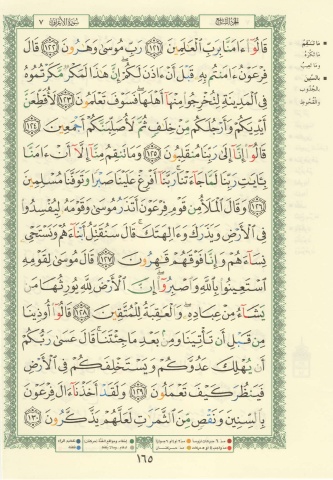 سُورَةُ الأَعْرَافِ ٧
الجُزْءُ التَّاسِعُ
قَالُوٓا۟ ءَامَنَّا بِرَبِّ ٱلْعَٰلَمِينَ ١٢١ رَبِّ مُوسَىٰ وَهَٰرُونَ ١٢٢ قَالَ
فِرْعَوْنُ ءَامَنتُم بِهِۦ قَبْلَ أَنْ ءَاذَنَ لَكُمْ إِنَّ هَٰذَا لَمَكْرٌ مَّكَرْتُمُوهُ
فِى ٱلْمَدِينَةِ لِتُخْرِجُوا۟ مِنْهَآ أَهْلَهَا فَسَوْفَ تَعْلَمُونَ ١٢٣ لَأُقَطِّعَنَّ
أَيْدِيَكُمْ وَأَرْجُلَكُم مِّنْ خِلَٰفٍ ثُمَّ لَأُصَلِّبَنَّكُمْ أَجْمَعِينَ ١٢٤
قَالُوٓا۟ إِنَّآ إِلَىٰ رَبِّنَا مُنقَلِبُونَ ١٢٥ وَمَا تَنقِمُ مِنَّآ إِلَّآ أَنْ ءَامَنَّا
بِـَٔايَٰتِ رَبِّنَا لَمَّا جَآءَتْنَا رَبَّنَآ أَفْرِغْ عَلَيْنَا صَبْرًا وَتَوَفَّنَا مُسْلِمِينَ
١٢٦ وَقَالَ ٱلْمَلَأُ مِن قَوْمِ فِرْعَوْنَ أَتَذَرُ مُوسَىٰ وَقَوْمَهُۥ لِيُفْسِدُوا۟
فِى ٱلْأَرْضِ وَيَذَرَكَ وَءَالِهَتَكَ قَالَ سَنُقَتِّلُ أَبْنَآءَهُمْ وَنَسْتَحْىِۦ
نِسَآءَهُمْ وَإِنَّا فَوْقَهُمْ قَٰهِرُونَ ١٢٧ قَالَ مُوسَىٰ لِقَوْمِهِ
ٱسْتَعِينُوا۟ بِٱللَّهِ وَٱصْبِرُوٓا۟ إِنَّ ٱلْأَرْضَ لِلَّهِ يُورِثُهَا مَن
يَشَآءُ مِنْ عِبَادِهِۦ وَٱلْعَٰقِبَةُ لِلْمُتَّقِينَ ١٢٨ قَالُوٓا۟ أُوذِينَا
مِن قَبْلِ أَن تَأْتِيَنَا وَمِنۢ بَعْدِ مَا جِئْتَنَا قَالَ عَسَىٰ رَبُّكُمْ
أَن يُهْلِكَ عَدُوَّكُمْ وَيَسْتَخْلِفَكُمْ فِى ٱلْأَرْضِ
فَيَنظُرَ كَيْفَ تَعْمَلُونَ ١٢٩ وَلَقَدْ أَخَذْنَآ ءَالَ فِرْعَوْنَ
بِٱلسِّنِينَ وَنَقْصٍ مِّنَ ٱلثَّمَرَٰتِ لَعَلَّهُمْ يَذَّكَّرُونَ ١٣٠
١٦٥